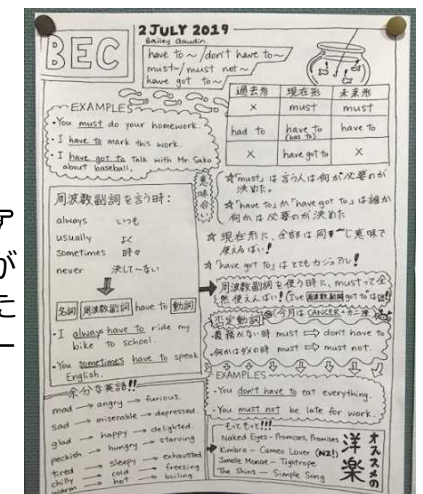 BEC
2 JULY 2019
Bailey
have to ~ / don't have to ~
must ~ / must not ~
have got to ~
EXAMPLES
・You must do your homework.
・I have to mark this work.
・I have got to talk with Mr. Sako
about baseball.
過去形 現在形 未来形
× must must
had to have to (has to) have to
× have got to ×
意味合い
☆「must」は言う人は何が必要のが
決めた。
☆「have to」か「have got to」は誰か
何かは必要のが決めた
☆ 現在形に、全部は同じ意味で
使えるばい!
☆「have got to」はとてもカジュアル!
周波数副詞を言う時:
always いつも
usually よく
sometimes 時々
never 決し〜ない
名詞 周波数副詞 have to 動詞
・I always have to ride my
bike to school.
・You sometimes have to speak
English.
周波数副詞を使う時に、mustって全
然使えんばい! (I've 周波数副詞 got to は
否定動詞 今月は CANCER・カニ座
・義務がない時 must ⇨ don't have to
・何かはダメの時 must ⇨ must not.
EXAMPLES
・You don't have to eat everything.
・You must not be late for work.
余分な英語!!
mad → angry → furious.
sad → miserable → depressed.
glad → happy → delighted.
peckish → hungry → starving
tired → sleepy → exhausted
chilly → cold → freezing
warm → hot → boiling
もっともって!!!
Naked Eyes - Promises, Promises
Kimbra - Cameo Lover (NZ!)
Janelle Monae - Tightrope
The Shins - Simple Song
オススメの
洋楽
が
た